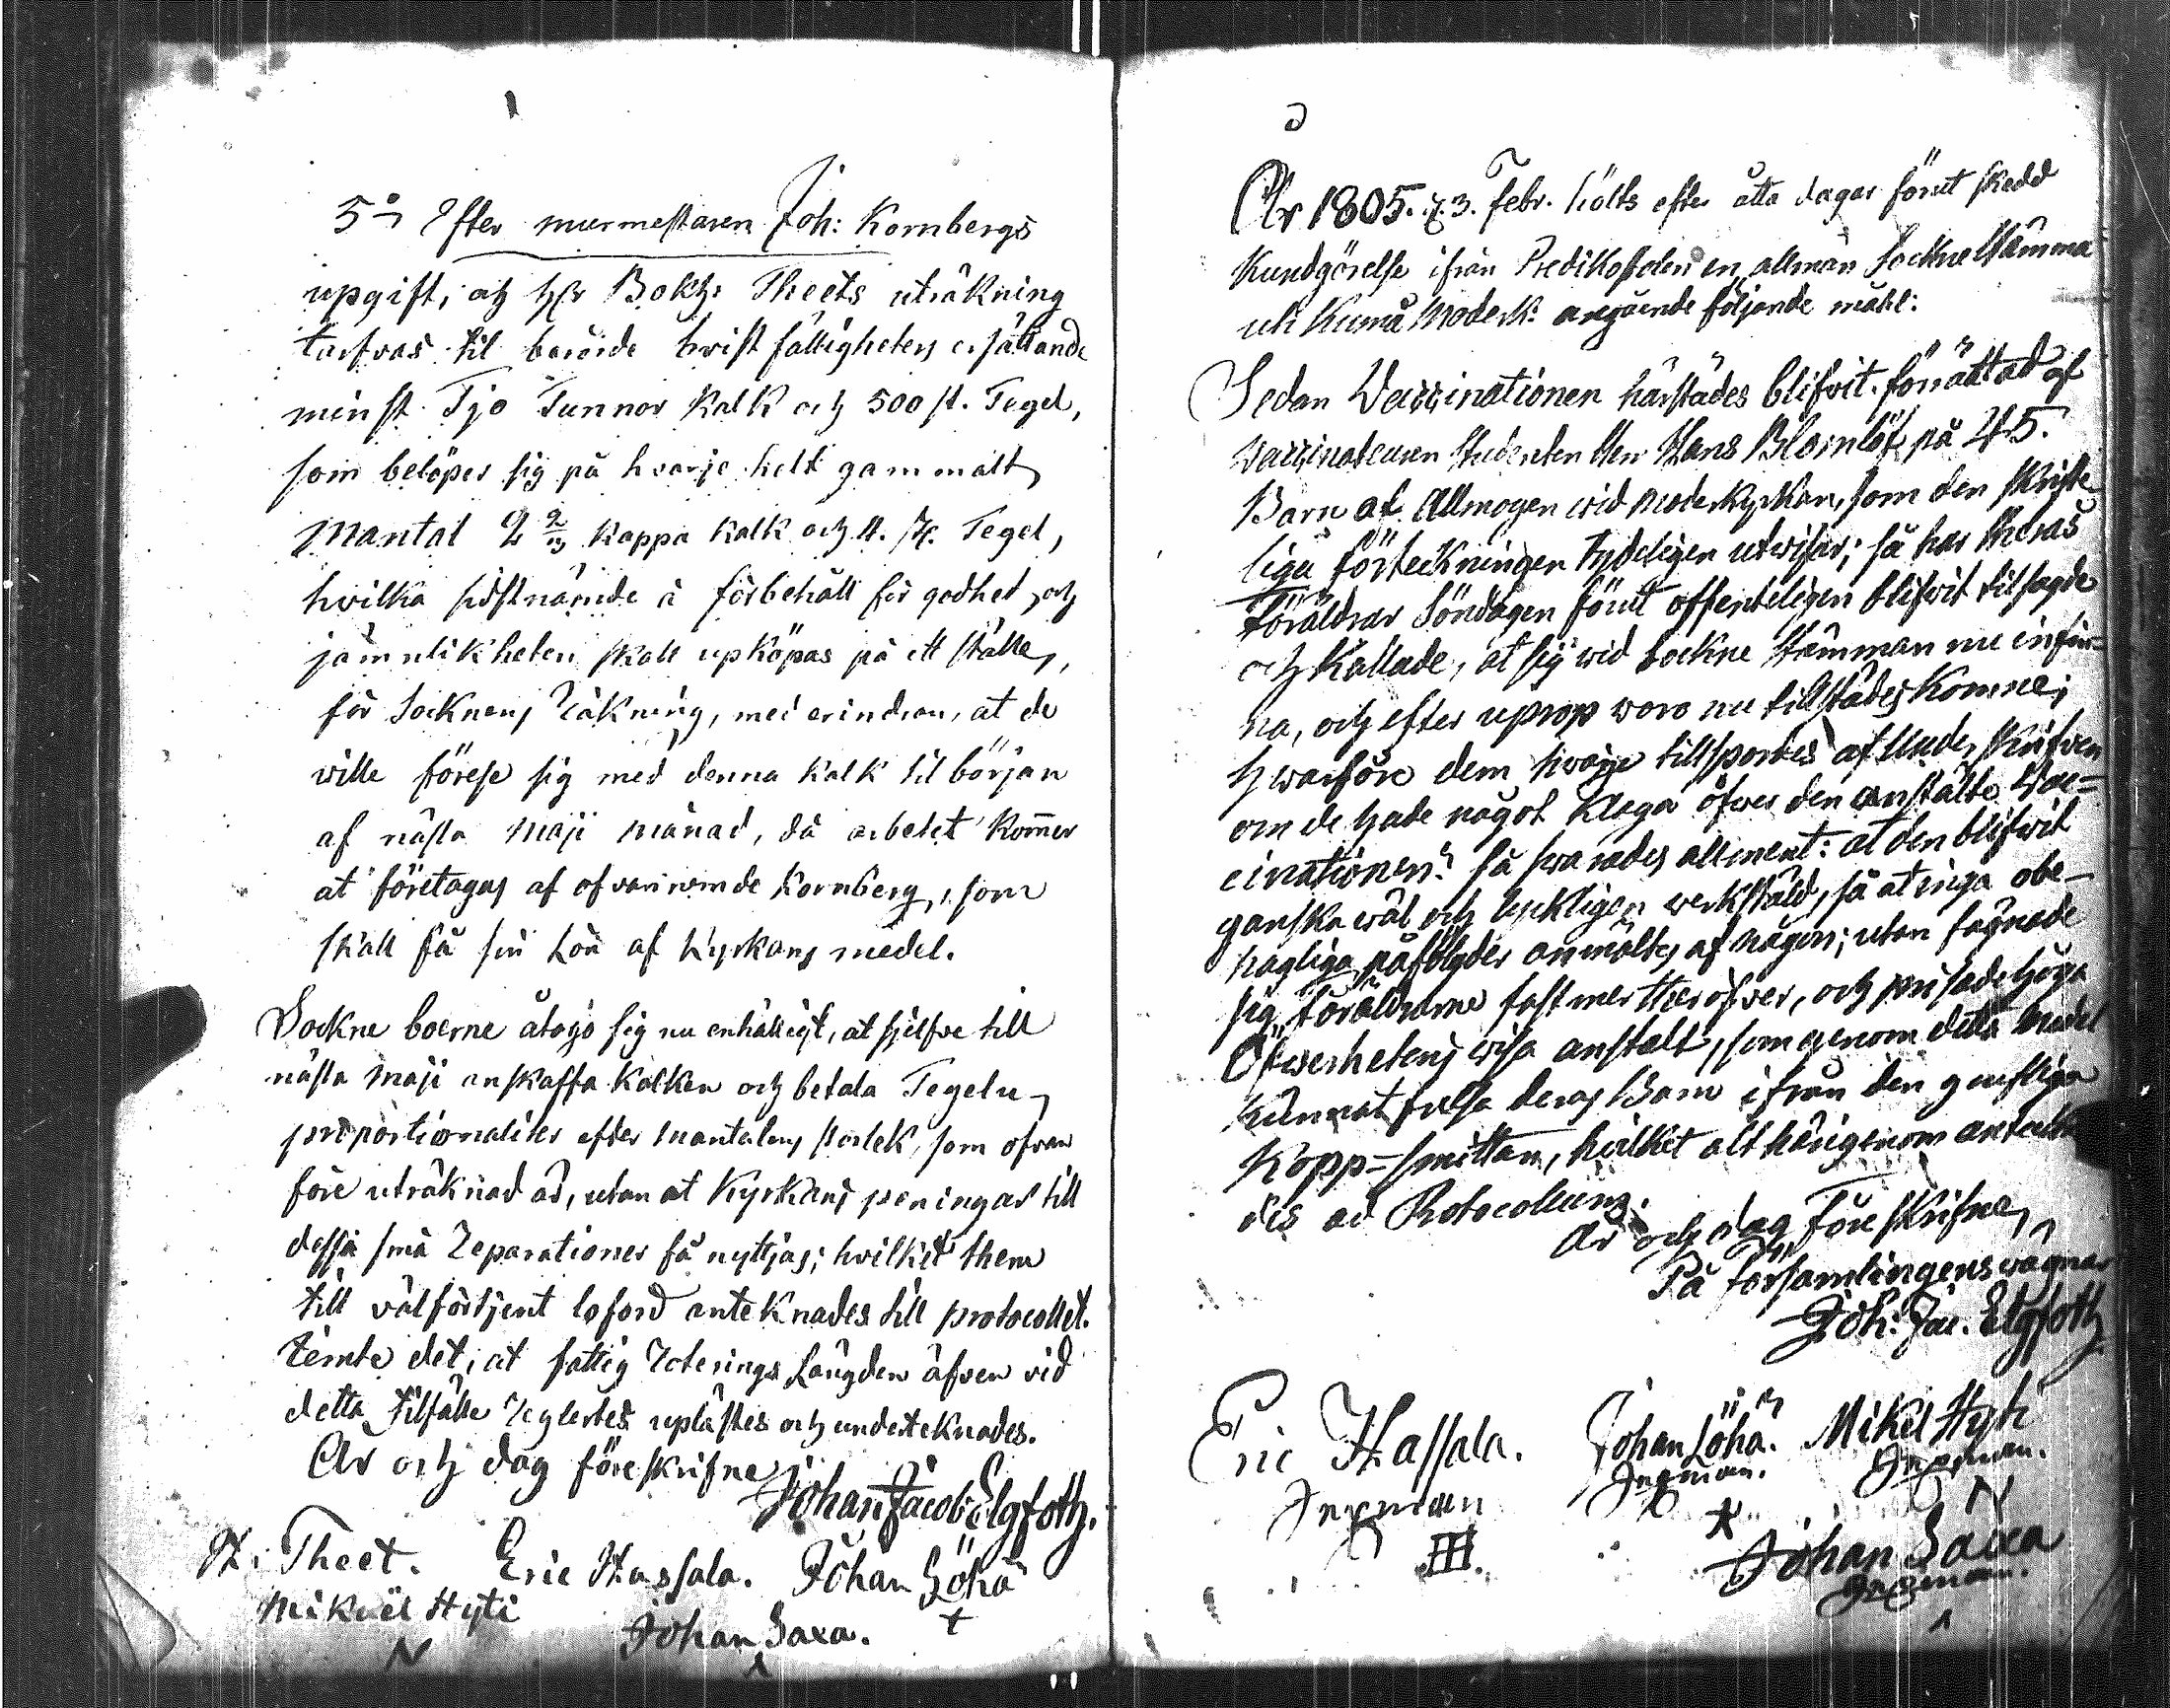 5:o Efter murmestaren Joh: Kornbergs
upgift, och Hr Bokh: Theets uträkning
tarfvas til berörde bristfälligheters ersättande
minst Tjo Tunnor Kalk och 500 st. Tegel,
som belöper sig på hvarje helt gammalt
Mantal 2 kappa kalk och 11. st. Tegel,
hvilka sidstnämde à förbehåll för godhet och
jämnlikheten skall upköpas på ett ställe,
för Socknens räkning, med erindran, at de
wille förese sig med denna kalk til början
af nästa Maji månad, då arbetet kom̄er
at företagas af ofvannemde Kornberg, som
skall få sin Lön af Kyrkans medel.
Sockne boerne åtogo sig nu enhälligt, at sjelfve till
nästa Maji anskaffa Kalken och betala Tegeln
proportionaliter efter Mantalens storlek, som ofvan
före uträknad är, utan at Kyrkans peningar till
dessa små Reparationer få nyttjas; hvilket them
till välförtjent loford anteknades till protocollet.
Temte det, at fattig Roterings Längden äfven vid
detta tilfälle reglertes uplästes och underteknades.
År och dag föreskrifne
Johan Jacob Elgfoth.
H. Theet. Eric Hassala. Johan Löhä
Mikael Hyti Johan Saxa.
År 1805. d. 3. Febr. hölts efter åtta dagar förut skedd
Kundgörelse ifrån Predikostolen en allmän Sockne Stämma
uti Kumå Moderk: angående följande måhl:
Sedan Vaccinationen härstädes blifvit förrättad af
Vaccinateuren Studenten Herr Hans Blomlöf på 45.
Barn af Allmogen wid Moderkyrkan, som den skrifte
liga förteckningen tydeligen utwisar; så har theras
Föräldrar Söndagen förut offenteligen blifvit tilsagde
och kallade, at sig wid Sockne Stämman nu infin-
na, och efter uprop woro nu tillstädes komne;
hwarföre dem hwarje tillspordes af
om de hade något klaga öfver den anstälte Vac-
cinationen? Så swarades allment: at den blifvit
ganska wäl och lyckligen werkstäld, så at inga obe-
hagliga påfölgder anmältes af någon; utan fägnade
sig Föräldrarne fast mer theröfver, och prisade höga
Öfwerhetens wisa anstalt, som genom detta medel
kunnat frelsa deras Barn ifrån den gruffliga
Kopp-smittan, hvilket alt härigenom anteckna
des ad Protocollum.
År och dag föreskrifne,
På Församlingens wägnar
Joh: Jac. Elgfoth
Eric Hassala. Johan Löhä. Mikel Hyti
Sexman Sexman. Sexman.
Johan Saxa
Sexman.